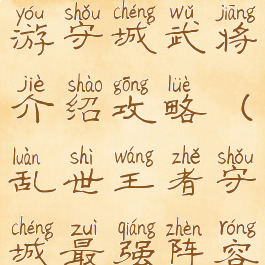 yóu shǒu chéng wǔ jiāng
游守城武将
jiè shào gōng lüè
介绍攻略（
luàn shì wáng zhě shǒu
乱世王者守
chéng zuì qiáng zhèn róng
城最强阵容